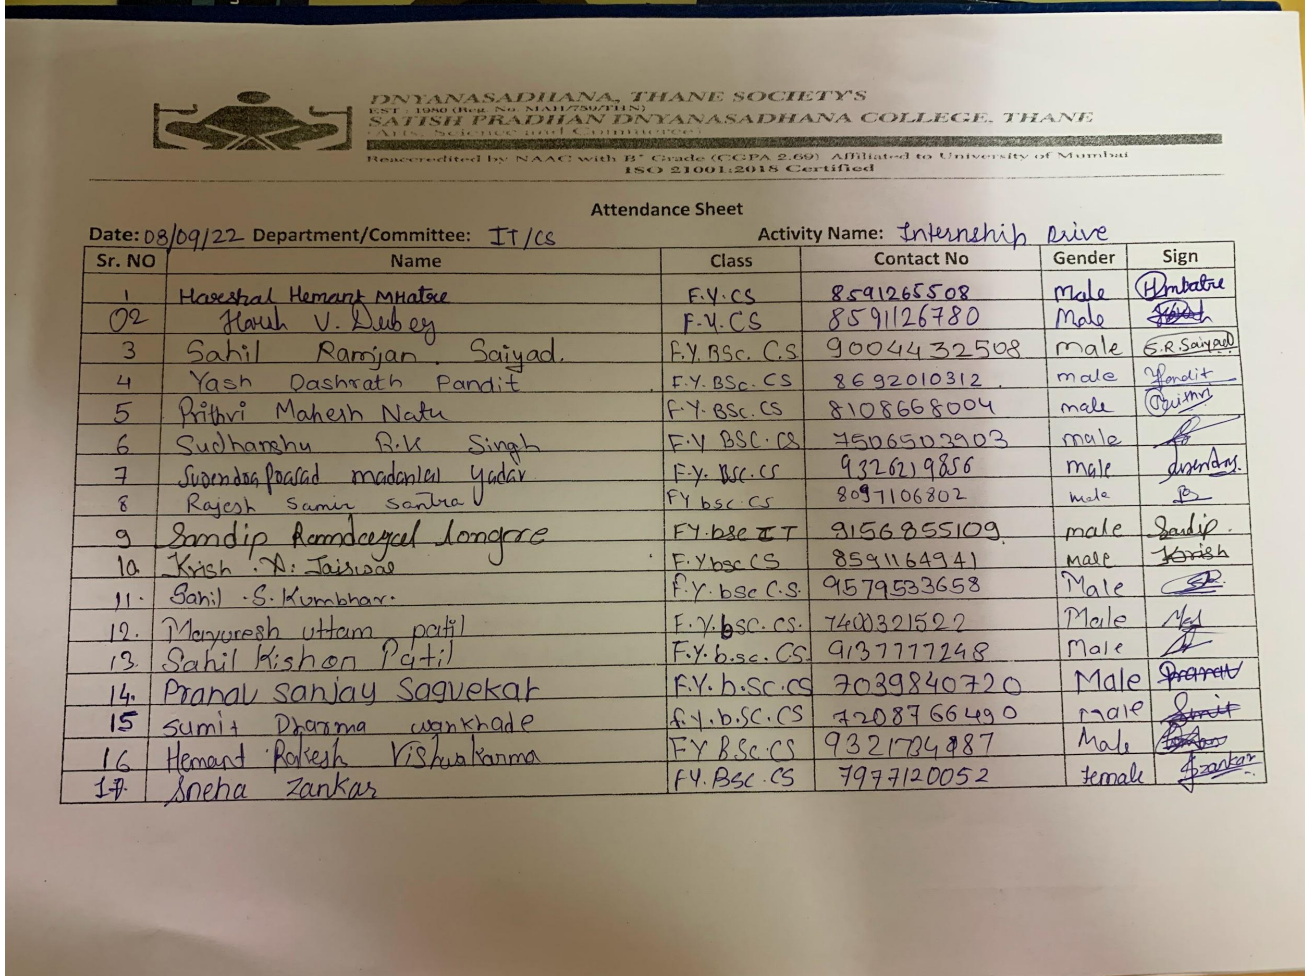 DNYANASADHANA, THANE SOCIETY'S
EST : 1980 (Reg. No. MAH/759/THN)
SATISH PRADHAN DNYANASADHANA COLLEGE, THANE
(Arts, Science and Commerce)
Reaccredited by NAAC with B+ Grade (CGPA 2.69) Affiliated to University of Mumbai
ISO 21001:2018 Certified
Attendance Sheet
Date: 08/09/22 Department/Committee: IT/CS Activity Name: Internship Drive
Sr. NO Name Class Contact No Gender Sign
1 Hareshal Hemant MHatre F.Y.CS 8591265508 Male Hmhatre
02 Harsh V. Dubey F.Y.CS 8591126780 Male
3 Sahil Ramjan Saiyad. F.Y.BSc. C.S 9004432508 male S.R.Saiyad
4 Yash Dashrath Pandit F.Y. BSc. CS 8692010312 male Pandit
5 Prithvi Mahesh Natu F.Y. BSc. CS 8108668004 male Prithvi
6 Sudhanshu R.K Singh F.Y BSC. CS 7506503903 male
7 Surendraprasad madanlal yadav F.Y. BSC. CS 9326219856 male
8 Rajesh Samir Santra FY bsc. CS 8097106802 male
9 Sandip Longre FY.bsc IT 9156855109 male Sandip.
10 Krish .A. Jaiswal F.Y bsc CS 8591164941 Male Krish
11. Sahil .S. Kumbhar. F.Y. bsc C.S. 9579533658 Male
12. Mayuresh uttam patil F.Y. bsc. CS. 7400321522 Male
13. Sahil Kishon Patil F.Y. b.sc. CS 9137777248 Male
14. Pranav Sanjay Saguekar F.Y. b.Sc. CS 7039840720 Male Pranav
15 Sumit Dharma wankhade F.Y. b.SC. CS 7208766490 Male Sumit
16 Hemand Rakesh Vishwakarma FY B.Sc. CS Male
17. Sneha Zankar FY. BSC. CS 7977120052 female Szankar